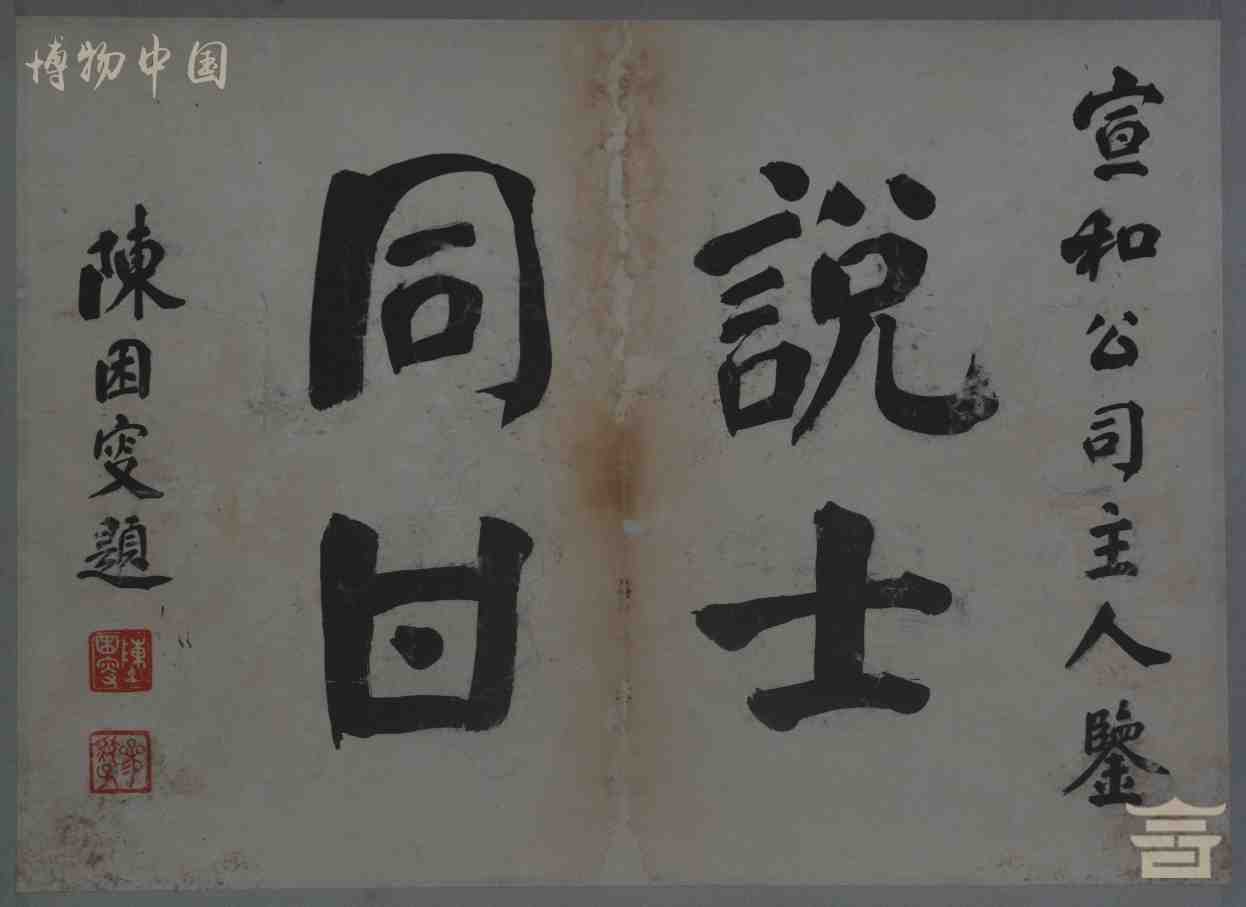 博物中国
宣和公司主人鑒
說士
同甘
陳困叟題